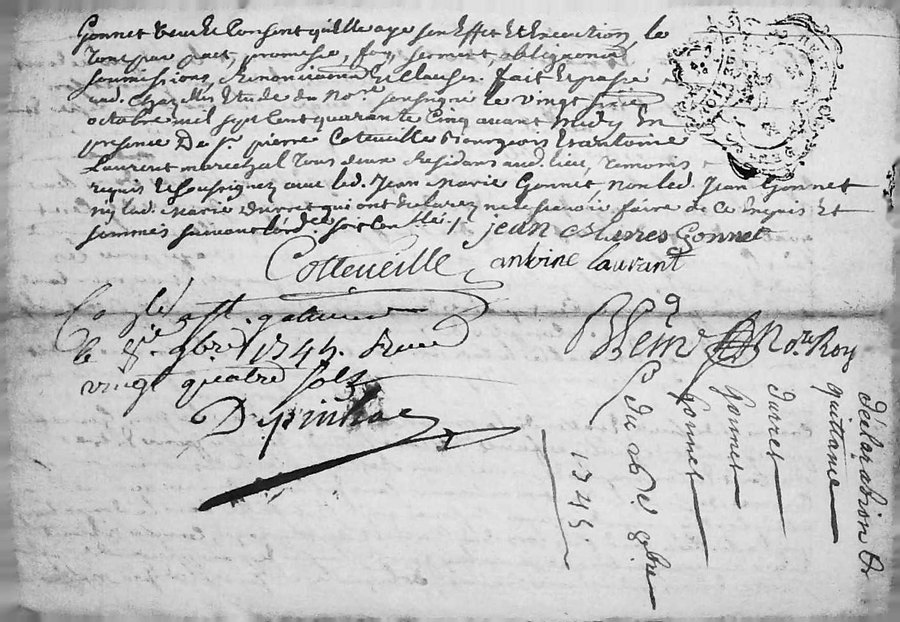 Gonnet veuve Consent quil aye son Effet Et Execution, le
Tout par pact, promesse, foy, serment, obligaons
soumissions, Renonciaons Et Clauses. fait Et passé
aud. Chazelles Etude du Nore soussigné le vingt
octobre mil sept Cent quarante Cinq avant midy En
presence De Sr. pierre Cotteveille Bourgeois Et antoine
Laurent marechal Tous deux Residans aud. lieu, Temoins
requis Et soussignez avec led. Jean Marie Gonnet, non led. Jean Gonnet
ny lad. Marie Durret qui ont declarez ne sçavoir faire de Ce Enquis Et
sommés suivant l'ord.
jean Gonnet
Cotteveille antoine laurant
Conlé
le 8bre 1745. Reçu
vingt quatre sols
Depinhac
Nore Roy
declaration Et
quittance
duret
Gonnet
Gonnet
du 26 8bre
1745